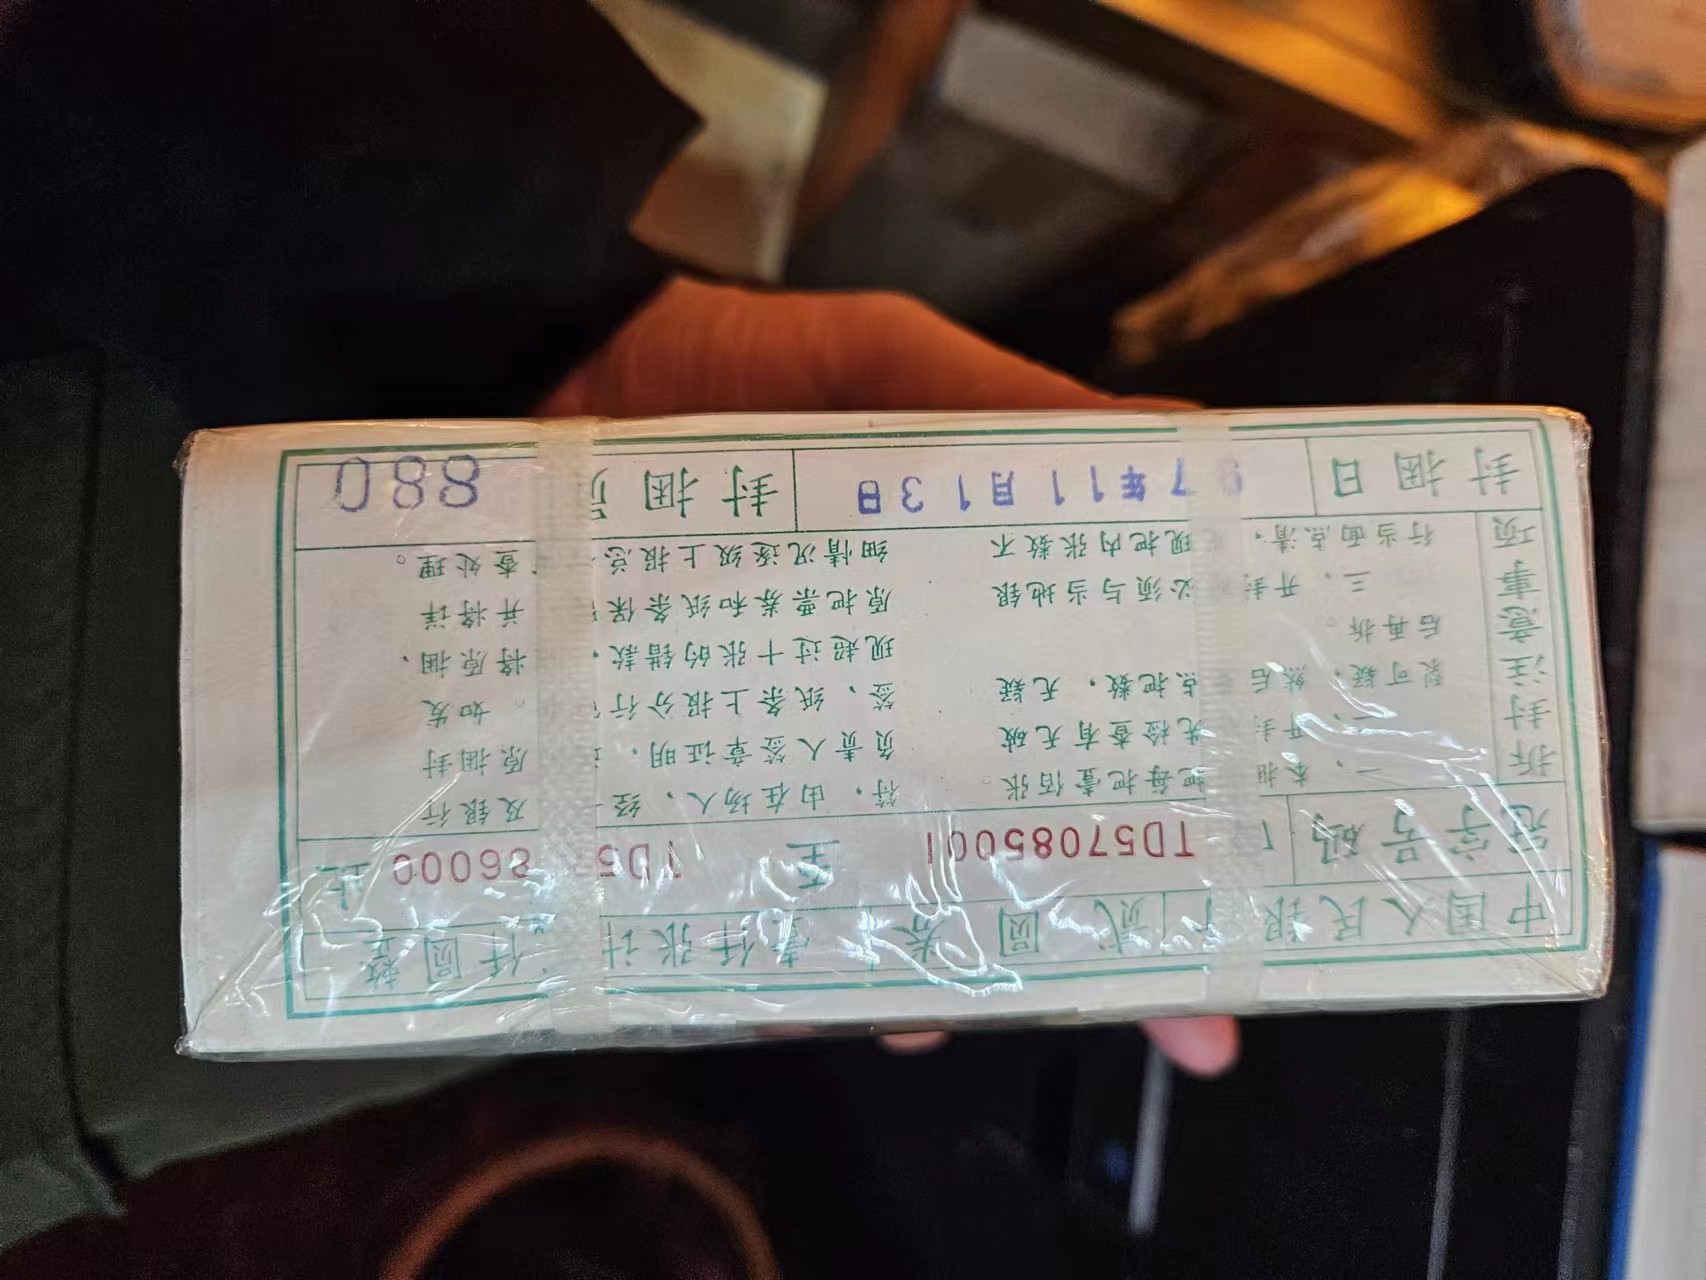 中国人民银 贰圆券 壹仟张计 仟圆整
冠字号码 TD57085001 至 TD5 86000 止
拆封注意事项
一、本捆 把每把壹佰张。
开封 先检查有无破
裂可疑,然后 点把数,无疑
后再拆。
三、开封 必须与当地银
行当面点清, 现把内张数不
符,由在场人、经 及银行
负责人签章证明, 原捆封
签、纸条上报分行 。如发
现超过十张的错款, 将原捆、
原把票券和纸条保 并将详
细情况逐级上报总 查处理。
封捆日 7年11月13日 封捆 880